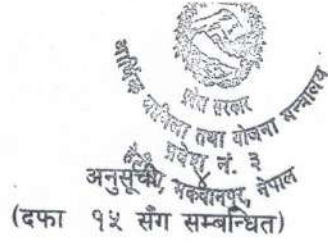 प्रदेश सरकार
आर्थिक मामिला तथा योजना मन्त्रालय
प्रदेश नं. ३
अनुसूची, मकवानपुर, नेपाल
(दफा १५ सँग सम्बन्धित)